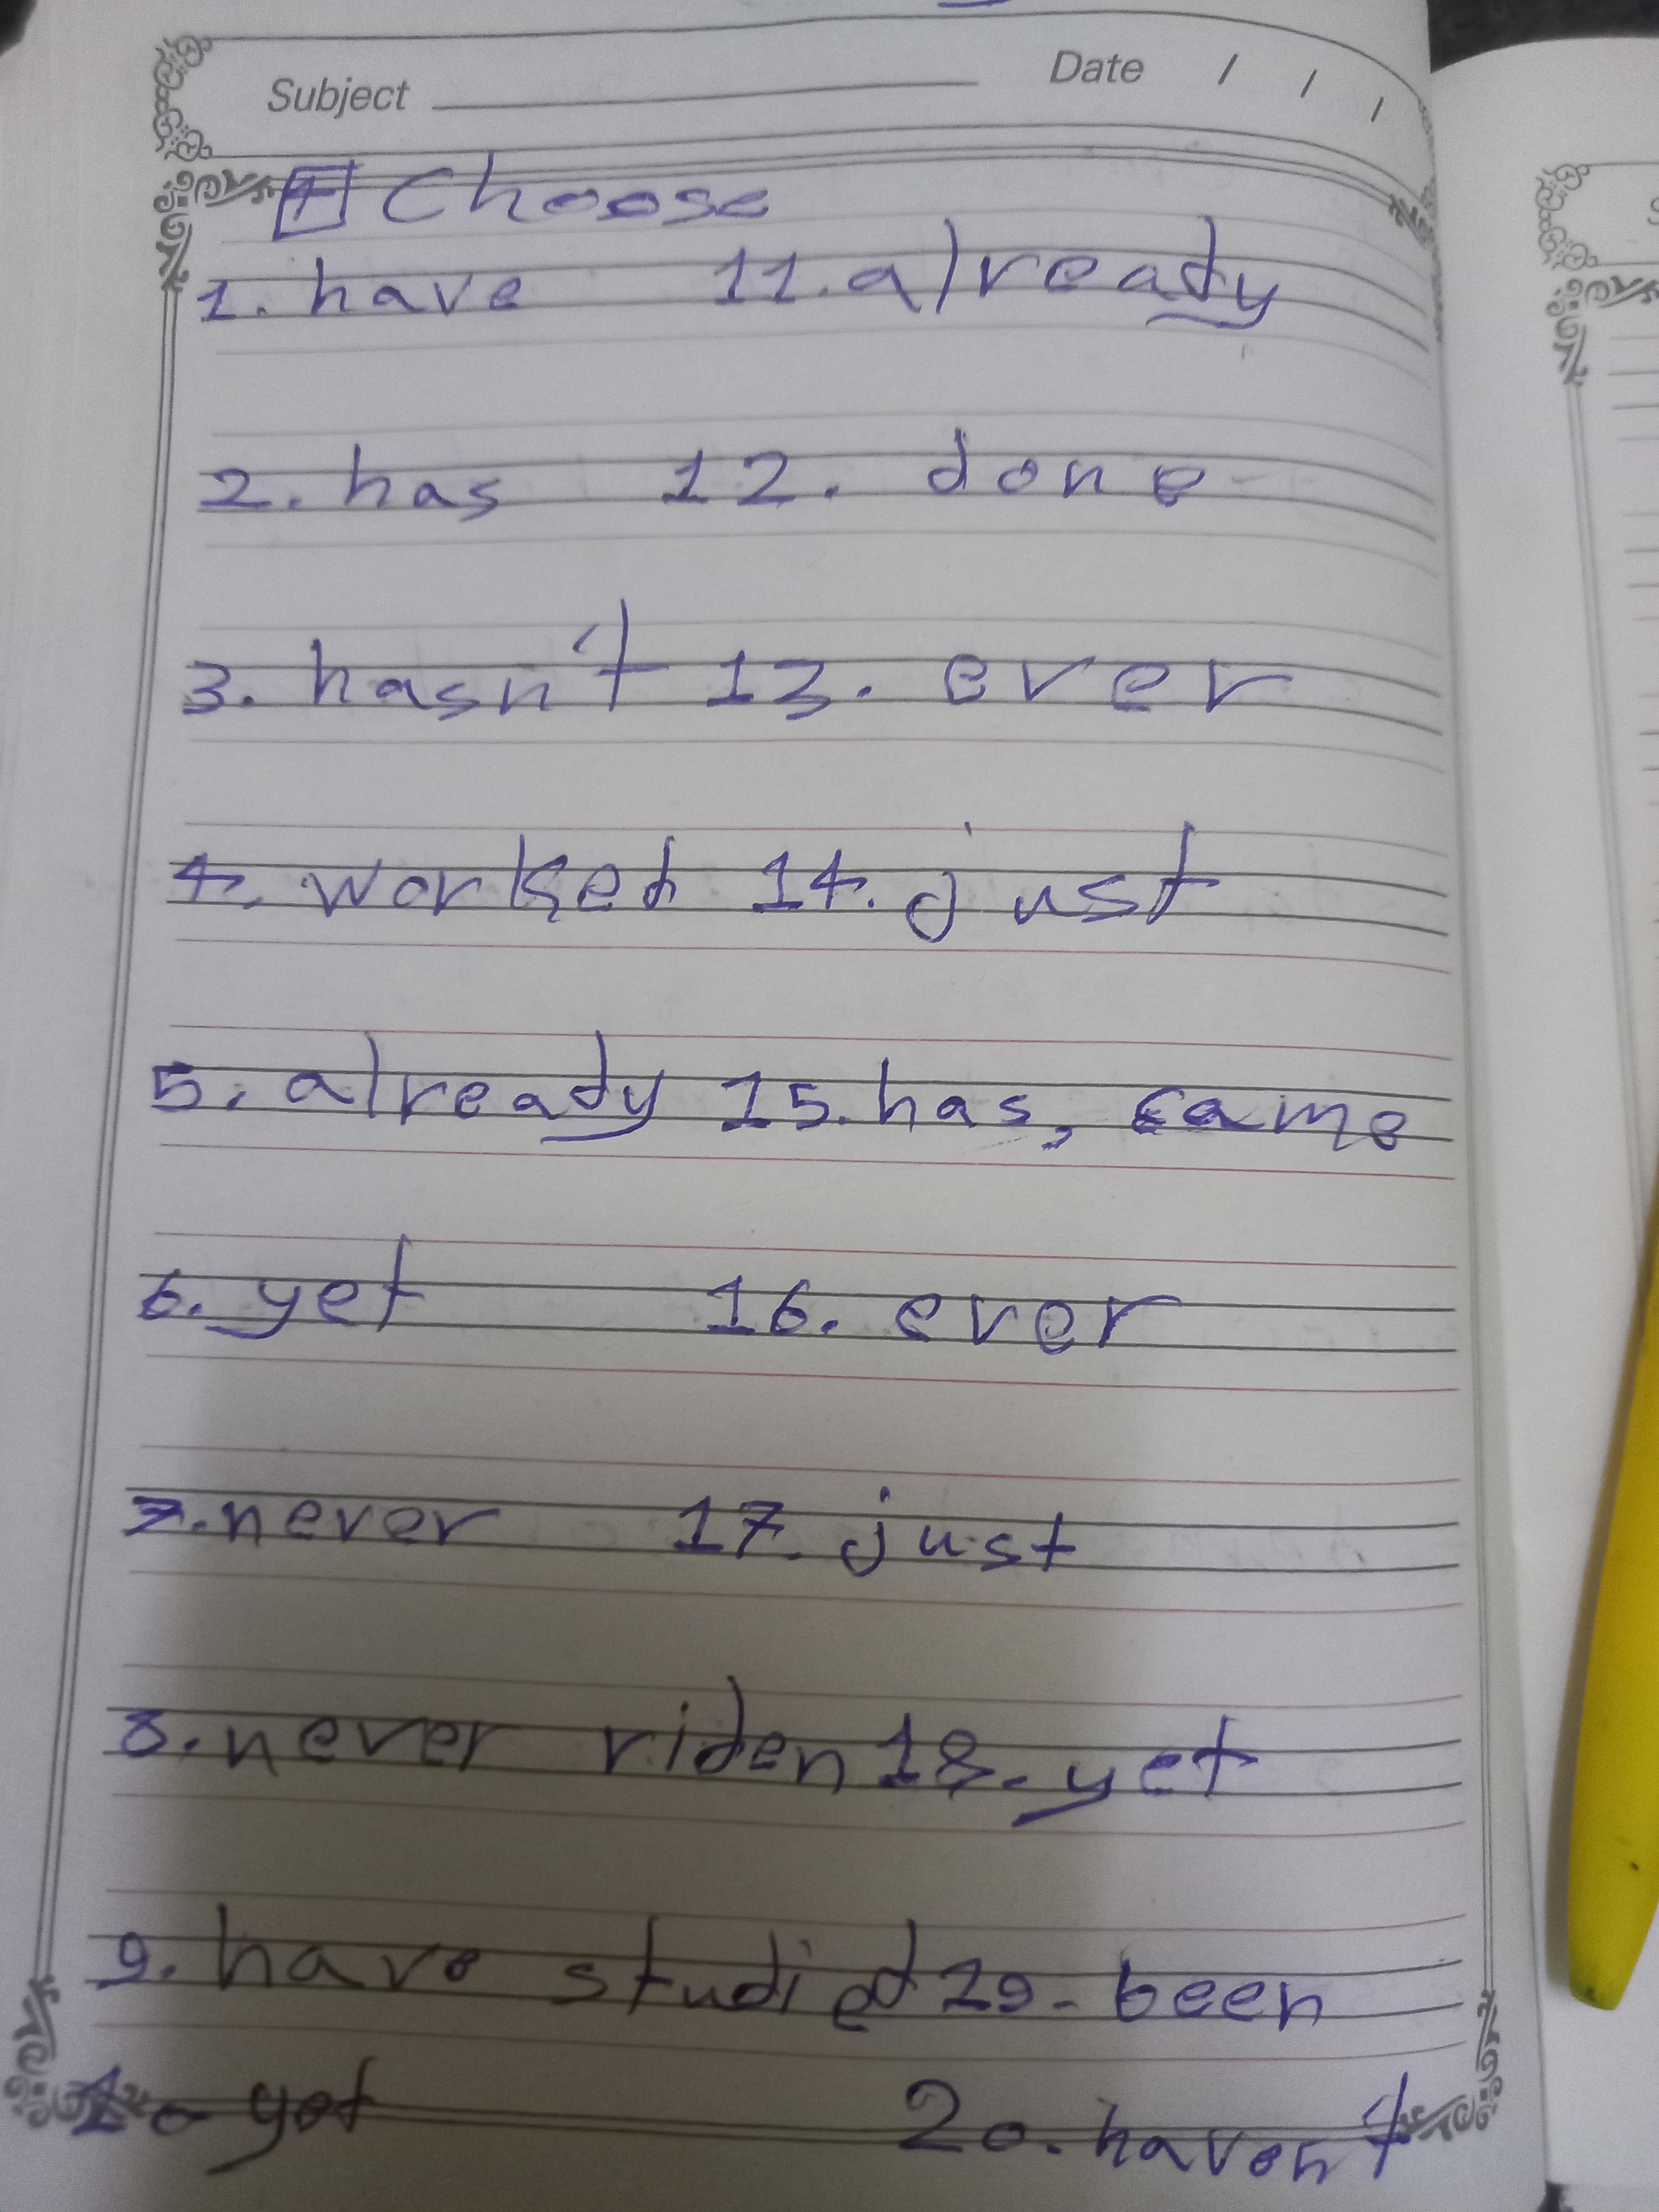 Subject Date / / /
4 Choose
1. have 11. already
2. has 12. done
3. hasn't 13. ever
4. worked 14. just
5. already 15. has, came
6. yet 16. ever
7. never 17. just
8. never riden 18. yet
9. have studied 19. been
10 yet 20. haven't